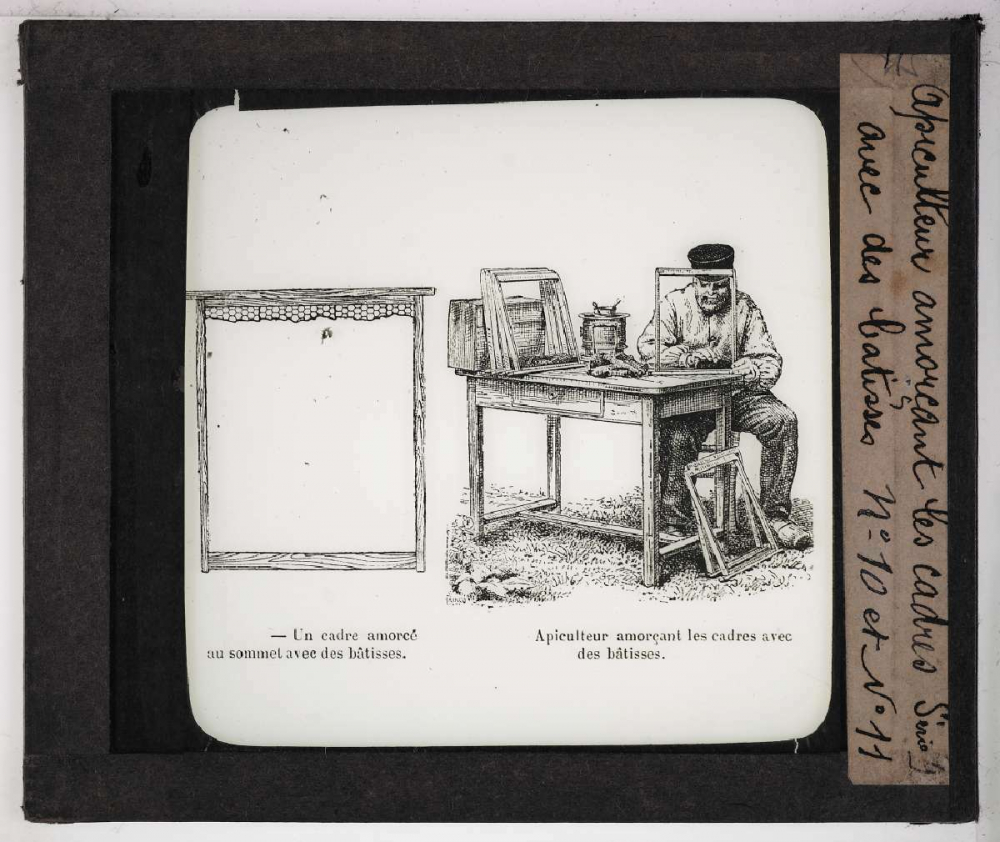 — Un cadre amorcé
au sommet avec des bâtisses.
Apiculteur amorçant les cadres avec
des bâtisses.
Apiculteur amorçant les cadres Série
avec des batisses N° 10 et N° 11